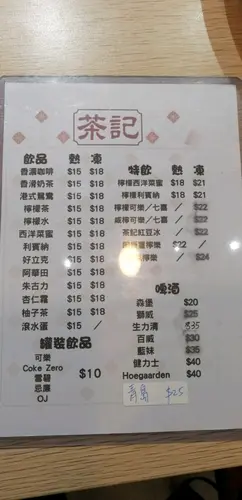 茶記
飲品 熱 凍
香濃咖啡 $15 $18
香滑奶茶 $15 $18
港式鴛鴦 $15 $18
檸檬茶 $15 $18
檸檬水 $15 $18
西洋菜蜜 $15 $18
利賓納 $15 $18
好立克 $15 $18
阿華田 $15 $18
朱古力 $15 $18
杏仁霜 $15 $18
柚子茶 $15 $18
滾水蛋 $15 /
罐裝飲品
可樂
Coke Zero
雪碧
忌廉
OJ
$10
特飲 熱 凍
檸檬西洋菜蜜 $18 $21
檸檬利賓納 $18 $21
檸檬可樂/七喜 / $22
咸檸可樂/七喜 / $22
茶記紅豆冰 / $22
檸樂 $22 /
檸樂 / $24
啤酒
森堡 $20
獅威 $25
生力清 $35
百威 $30
藍妹 $35
健力士 $40
Hoegaarden $40
青島 $25